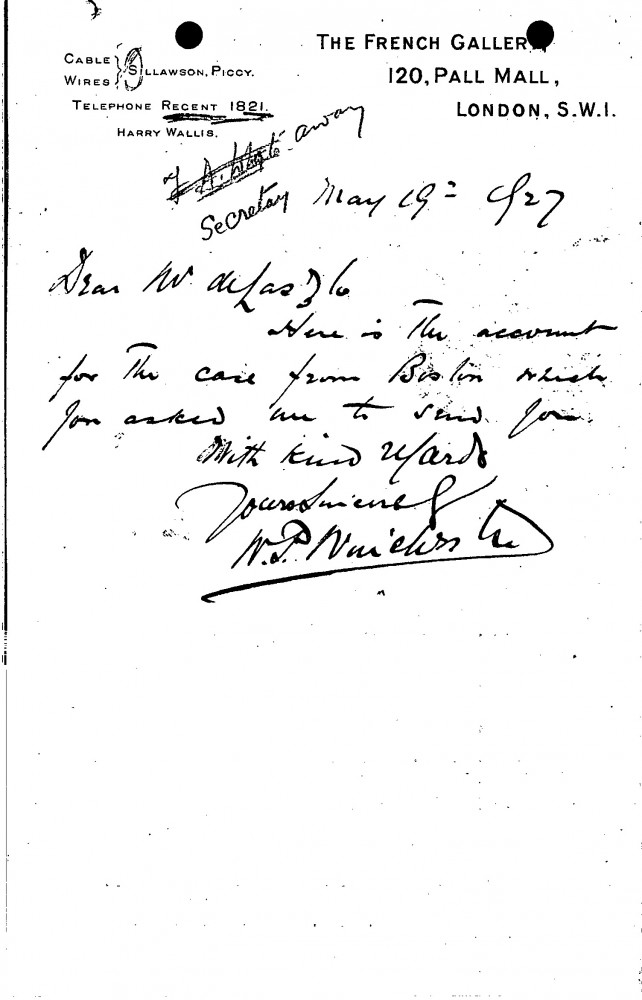 THE FRENCH GALLERY,
120, PALL MALL,
LONDON, S.W.1.
CABLE
WIRES
SILLAWSON, PICCY.
TELEPHONE REGENT 1821.
HARRY WALLIS.
away
Secretary
May 19th 1927
Dear Mr de Laszlo
Here is the account
for the case from Boston which
you asked me to send you.
With kind regards
Yours sincerely
W.P.